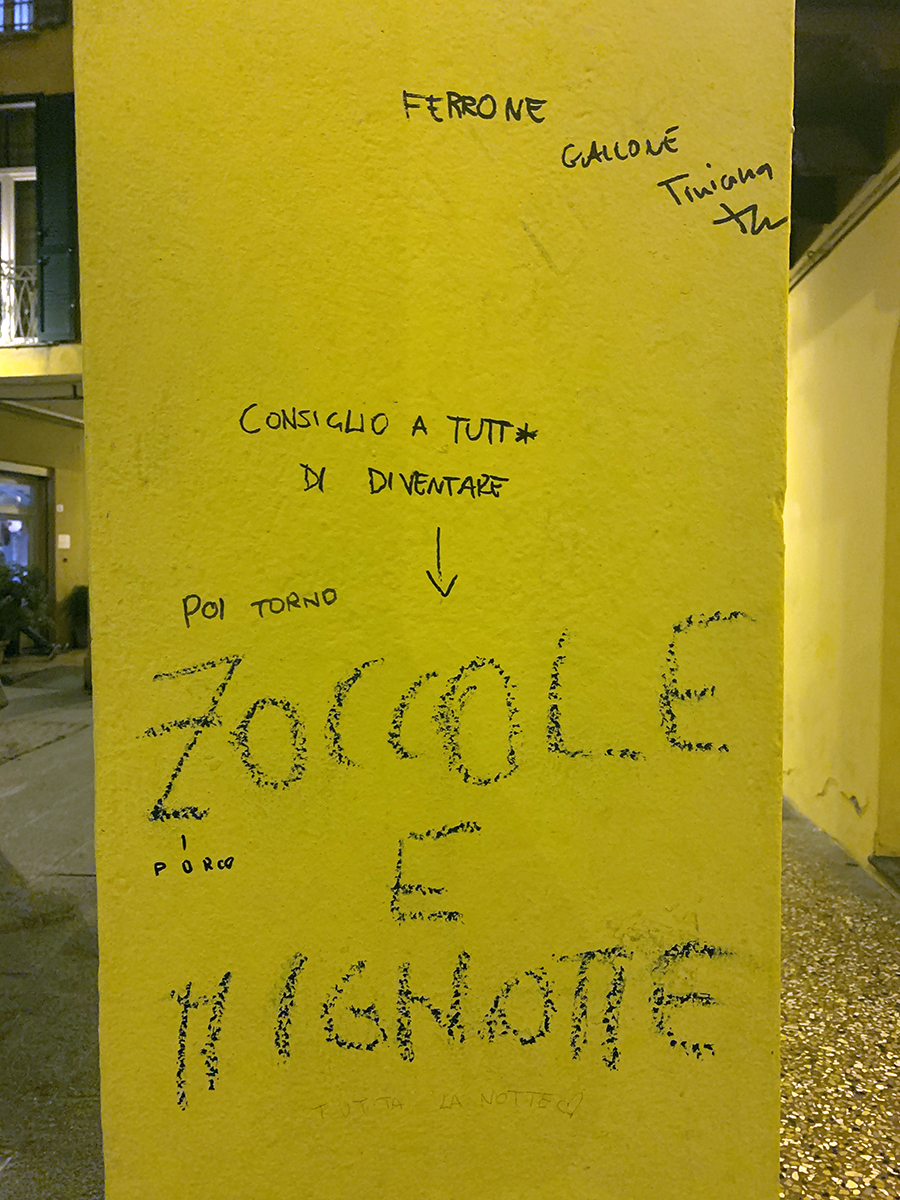 FERRONE
GALLONE
Tiniana
CONSIGLIO A TUTT*
DI DIVENTARE
POI TORNO
ZOCCOLE
I
PORCO
E
MIGNOTTE
TUTTA LA NOTTE